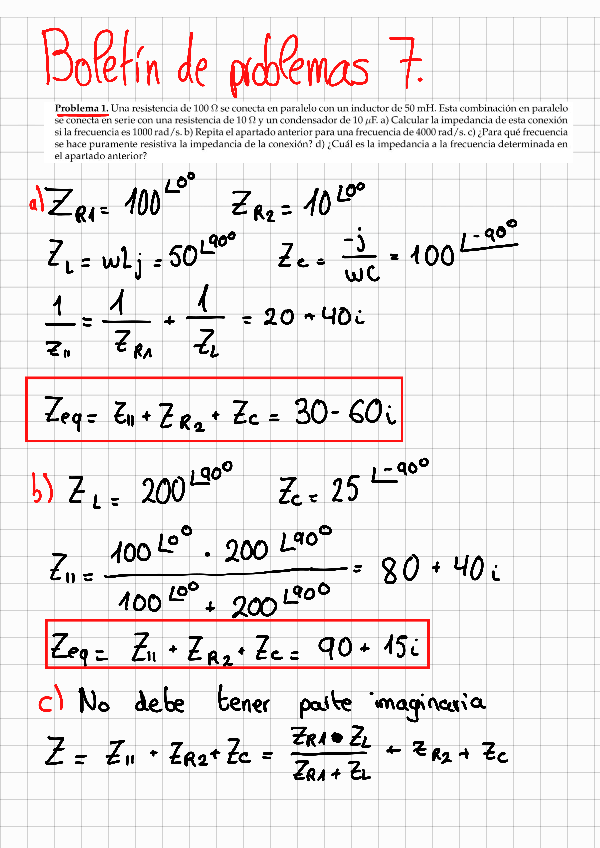 Boletín de problemas 7.
Problema 1. Una resistencia de 100 Ω se conecta en paralelo con un inductor de 50 mH. Esta combinación en paralelo
se conecta en serie con una resistencia de 10 Ω y un condensador de 10 μF. a) Calcular la impedancia de esta conexión
si la frecuencia es 1000 rad/s. b) Repita el apartado anterior para una frecuencia de 4000 rad/s. c) ¿Para qué frecuencia
se hace puramente resistiva la impedancia de la conexión? d) ¿Cuál es la impedancia a la frecuencia determinada en
el apartado anterior?
a) Z_R1 = 100∠0° Z_R2 = 10∠0°
Z_L = wLj = 50∠90° Z_c = -j/wC = 100∠-90°
1/Z_II = 1/Z_R1 + 1/Z_L = 20 + 40i
Zeq = Z_II + Z_R2 + Z_C = 30 - 60i
b) Z_L = 200∠90° Z_C = 25∠-90°
Z_II = (100∠0° · 200∠90°)/(100∠0° + 200∠90°) = 80 + 40i
Zeq = Z_II + Z_R2 + Z_C = 90 + 15i
c) No debe tener parte imaginaria
Z = Z_II + Z_R2 + Z_C = (Z_R1 • Z_L)/(Z_R1 + Z_L) + Z_R2 + Z_C